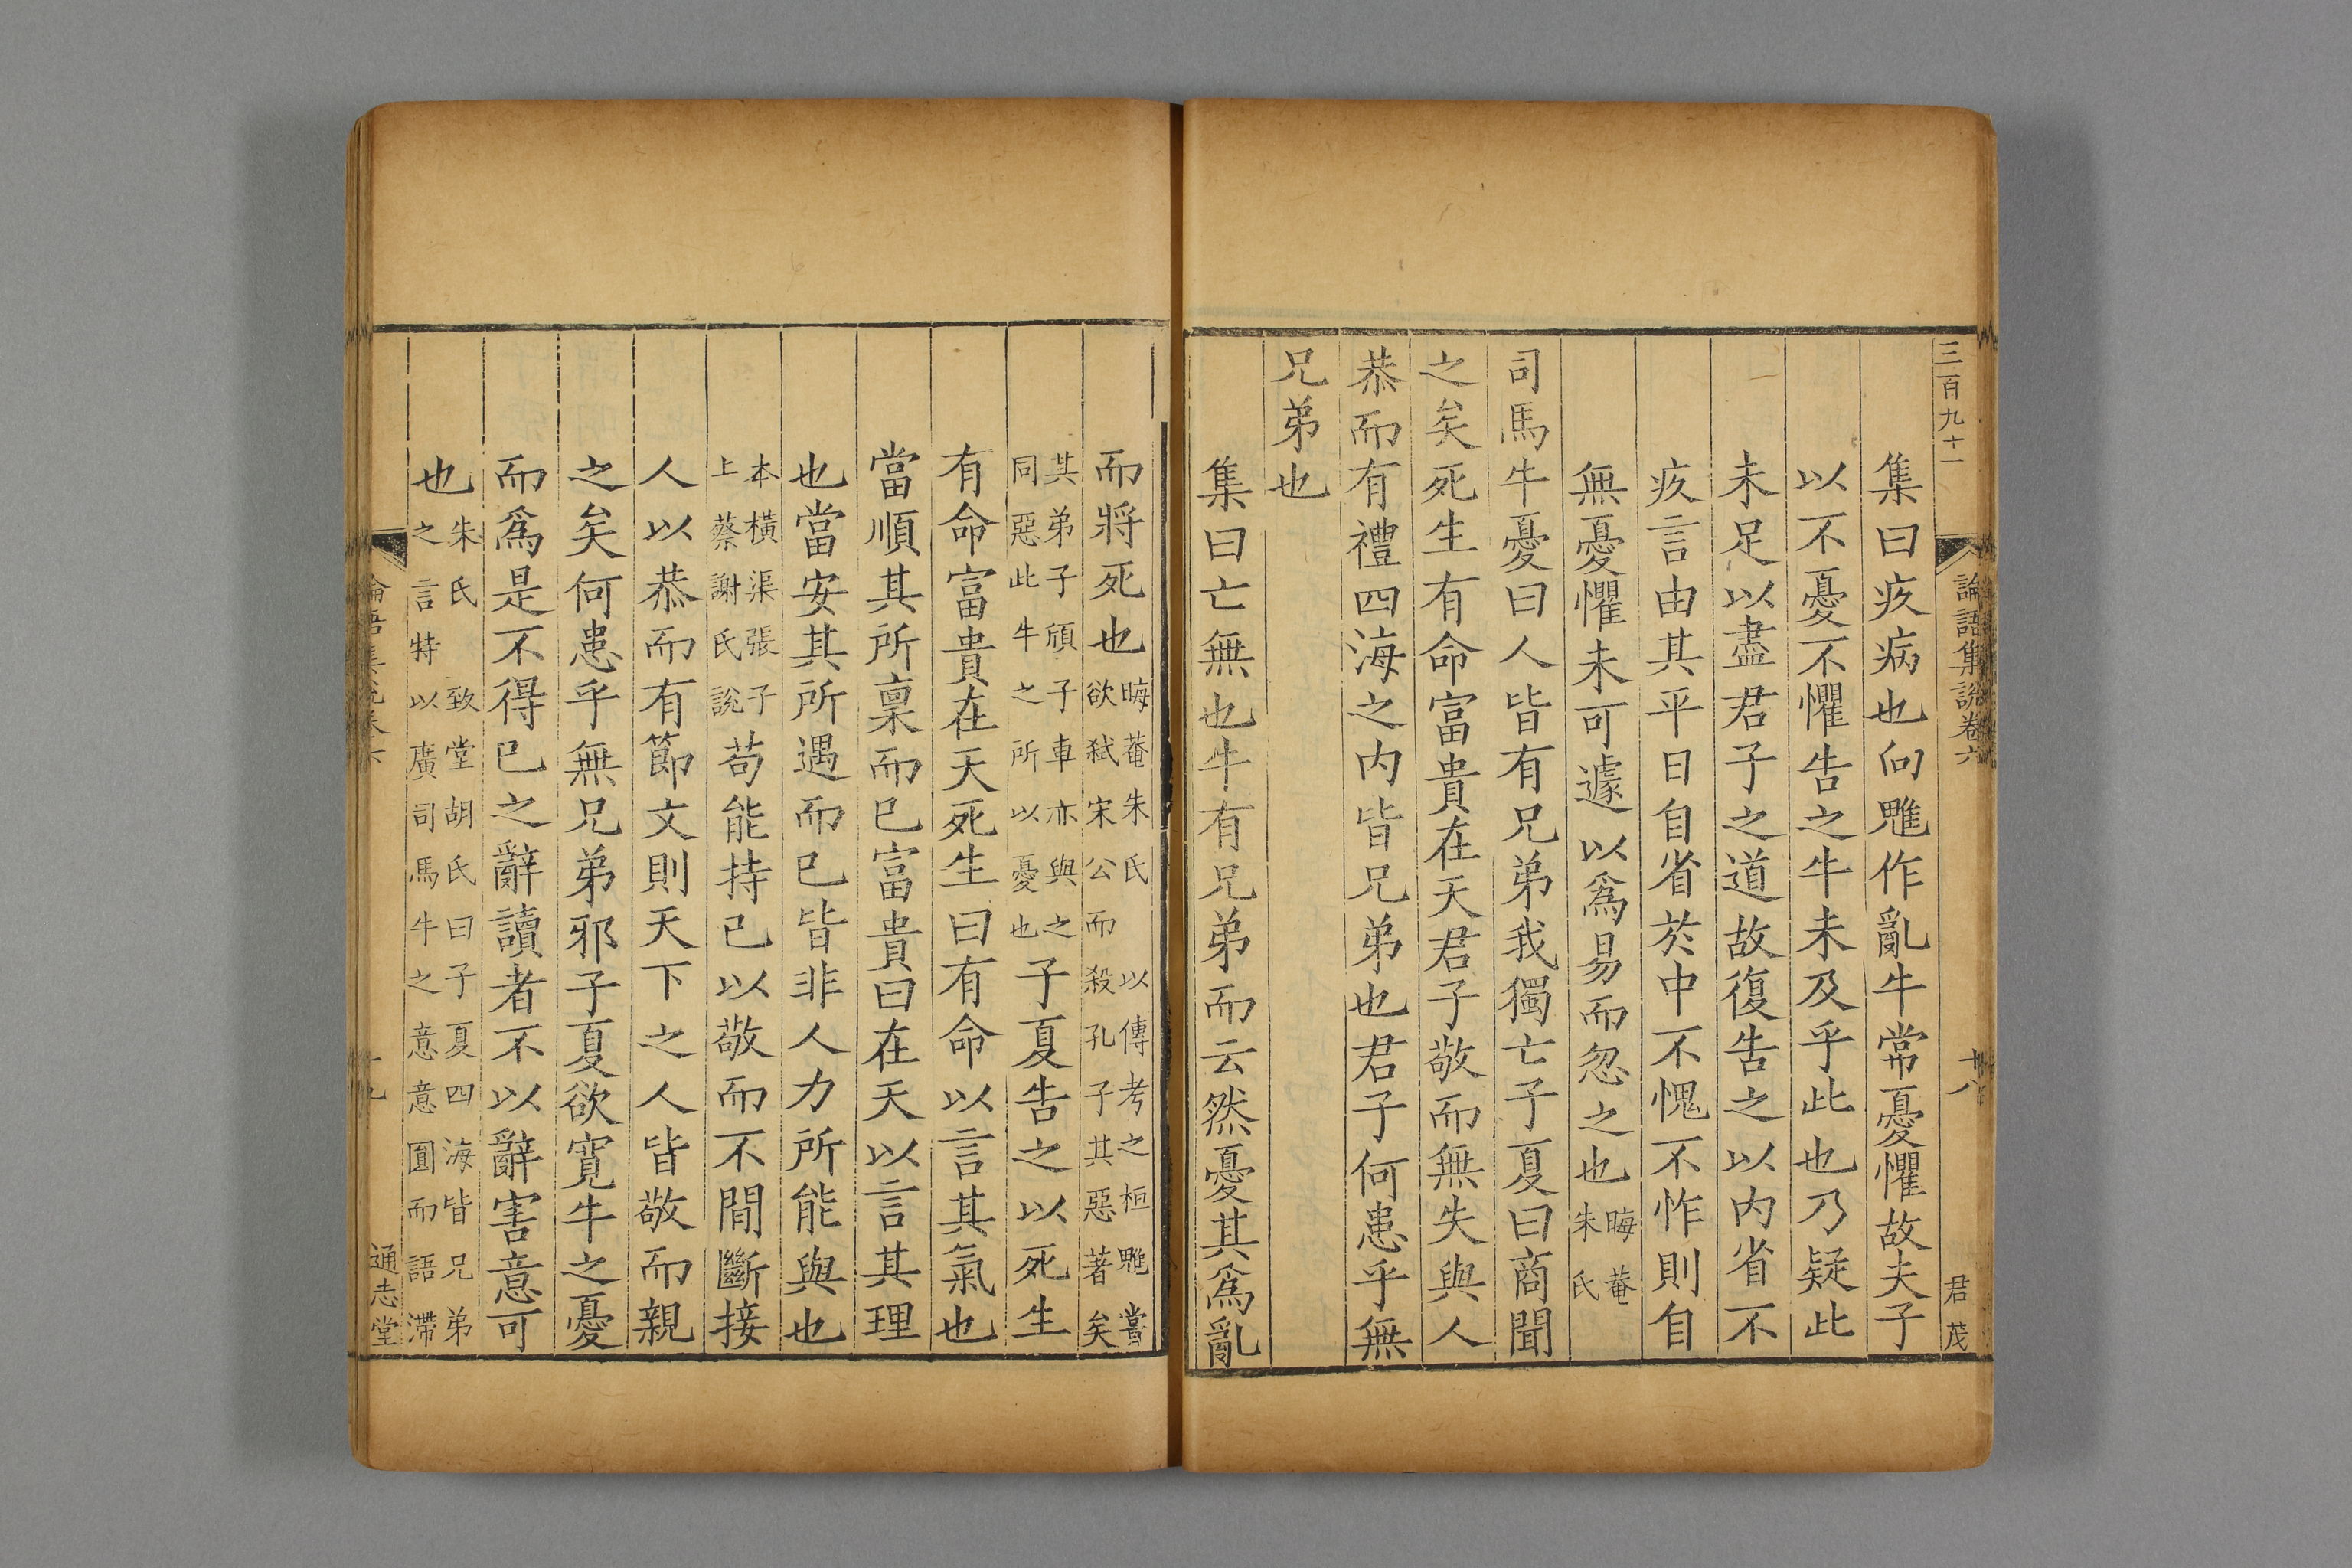 三百九十一
論語集說卷六
十八
君茂
集曰疚病也向魋作亂牛常憂懼故夫子
以不憂不懼告之牛未及乎此也乃疑此
未足以盡君子之道故復告之以內省不
疚言由其平日自省於中不愧不怍則自
無憂懼未可遽以爲易而忽之也晦菴
朱氏
司馬牛憂曰人皆有兄弟我獨亡子夏曰商聞
之矣死生有命富貴在天君子敬而無失與人
恭而有禮四海之內皆兄弟也君子何患乎無
兄弟也
集曰亡無也牛有兄弟而云然憂其爲亂
而將死也晦菴朱氏 以傳考之桓魋嘗
欲弑宋公而殺孔子其惡著矣
其弟子頎子車亦與之
同惡此牛之所以憂也子夏告之以死生
有命富貴在天死生曰有命以言其氣也
當順其所稟而已富貴曰在天以言其理
也當安其所遇而已皆非人力所能與也
本橫渠張子
上蔡謝氏說苟能持己以敬而不間斷接
人以恭而有節文則天下之人皆敬而親
之矣何患乎無兄弟邪子夏欲寬牛之憂
而爲是不得已之辭讀者不以辭害意可
也朱氏 致堂胡氏曰子夏四海皆兄弟
之言特以廣司馬牛之意意圓而語滯
論語集說卷六
十九
通志堂